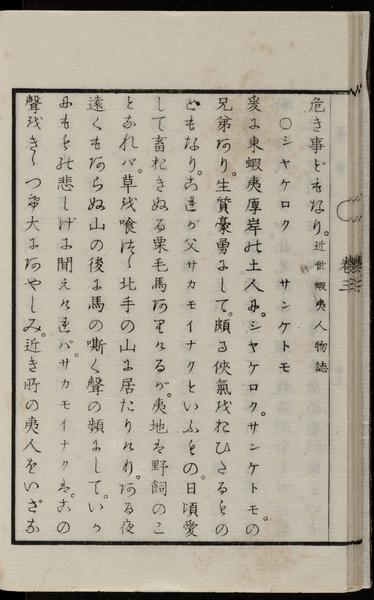 危き事どもなり。近世蝦夷人物誌
○シヤケロク サンケトモ
爰に東蝦夷厚岸の土人に。シヤケロク。サンケトモ。の
兄弟あり。生質豪勇にして。頗る俠氣をおひたるもの
どもなり。これが父サカモイナクといふもの。日頃愛
して畜おきぬる栗毛馬ありけるが。夷地は野飼のこ
となれバ。草を喰はし北手の山に居たりけり。ある夜
遠くもあらぬ山の後に馬の嘶く聲の頻にして。いか
にももの悲しげに聞えければ。サカモイナクは。この
聲をきゝつけ大にあやしみ。近き所の夷人をいざな
卷三